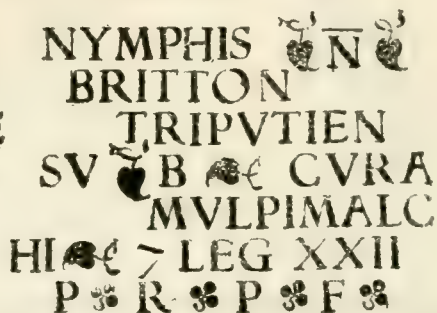 NYMPHIS N
BRITTON
TRIPVTIEN
SV B CVRA
MVLPIMALC
HI > LEG XXII
P R P F